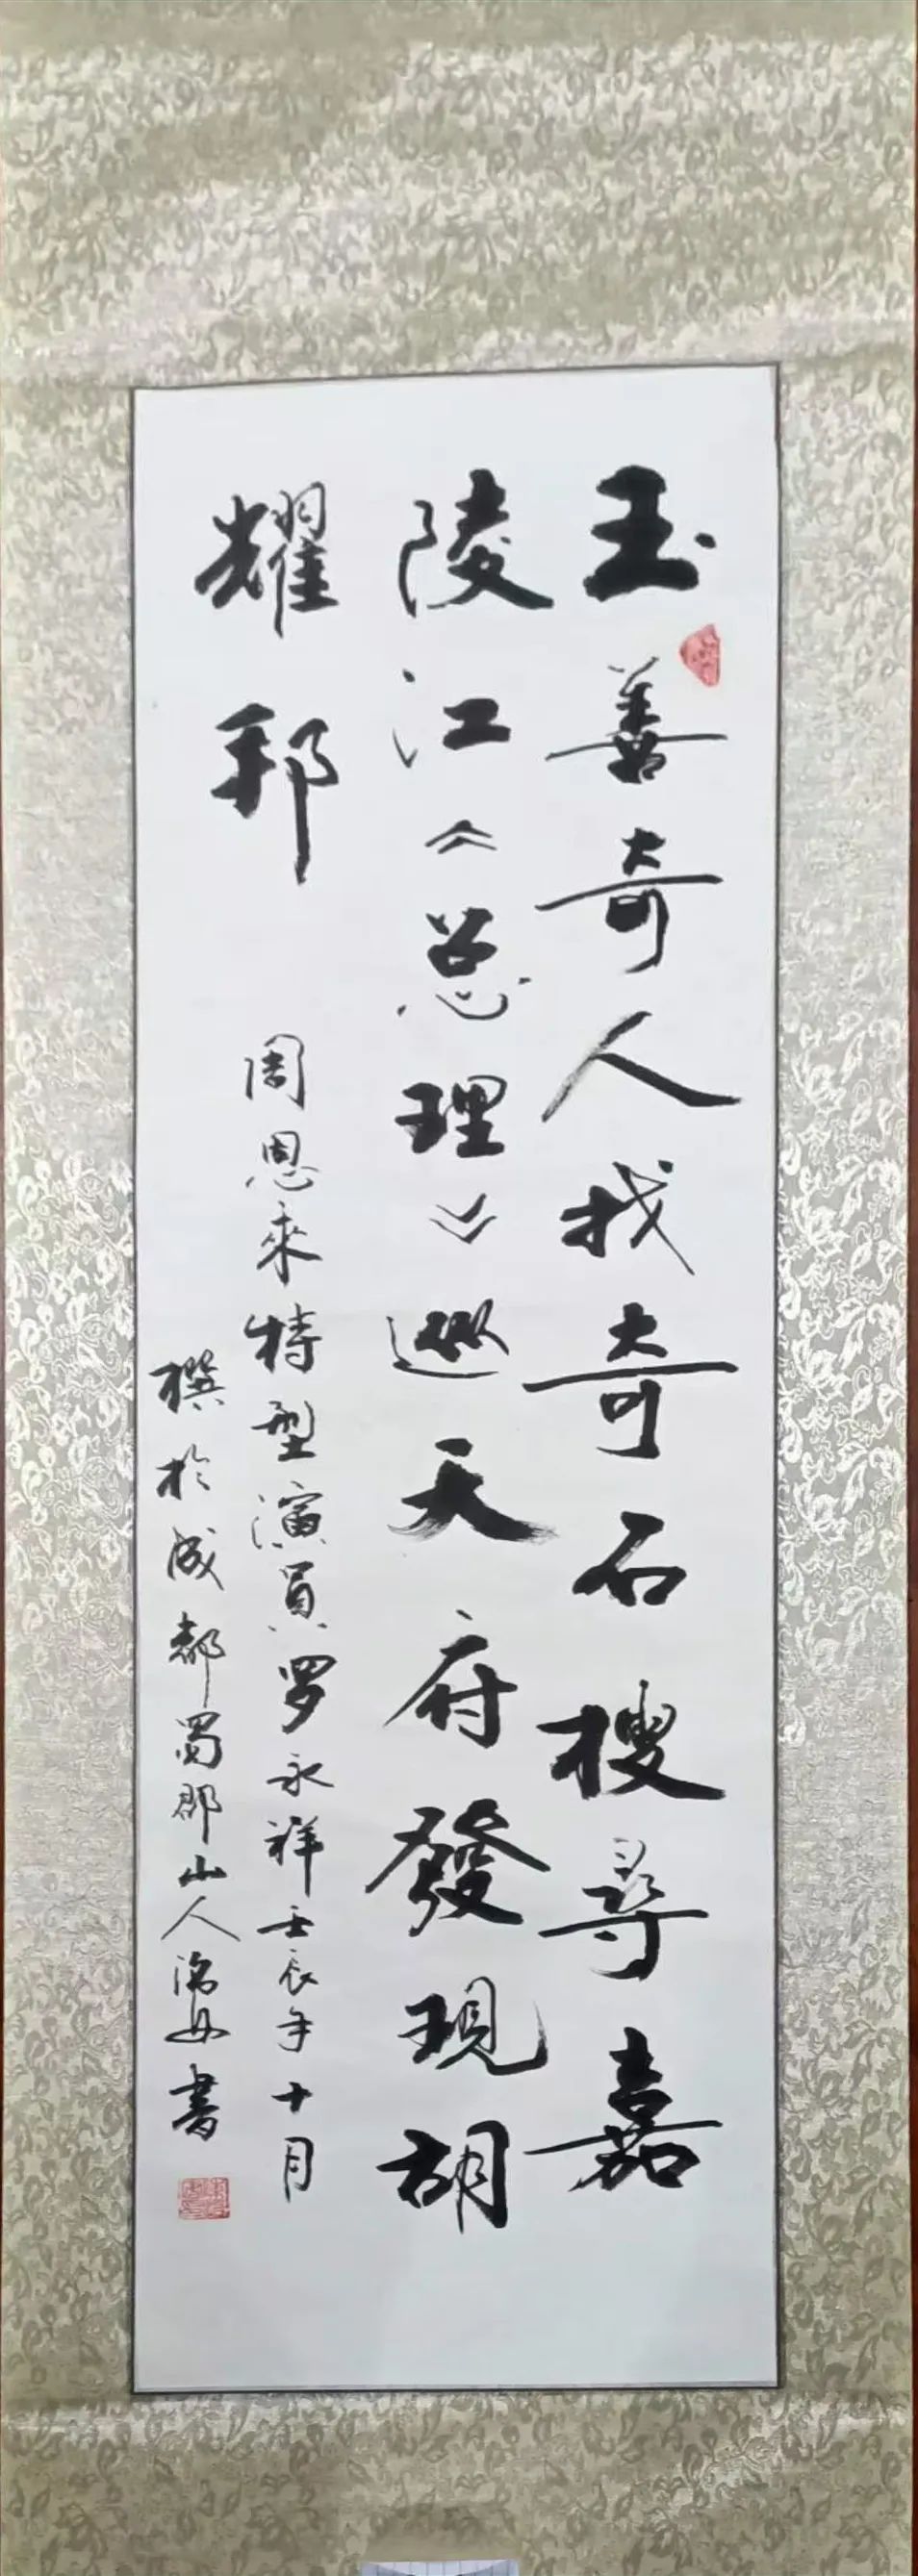 玉善奇人找奇石搜尋嘉
陵江《总理》巡天府發現胡
耀邦
周恩來特型演員罗永祥壬辰年十月
撰於成都蜀郡山人 書